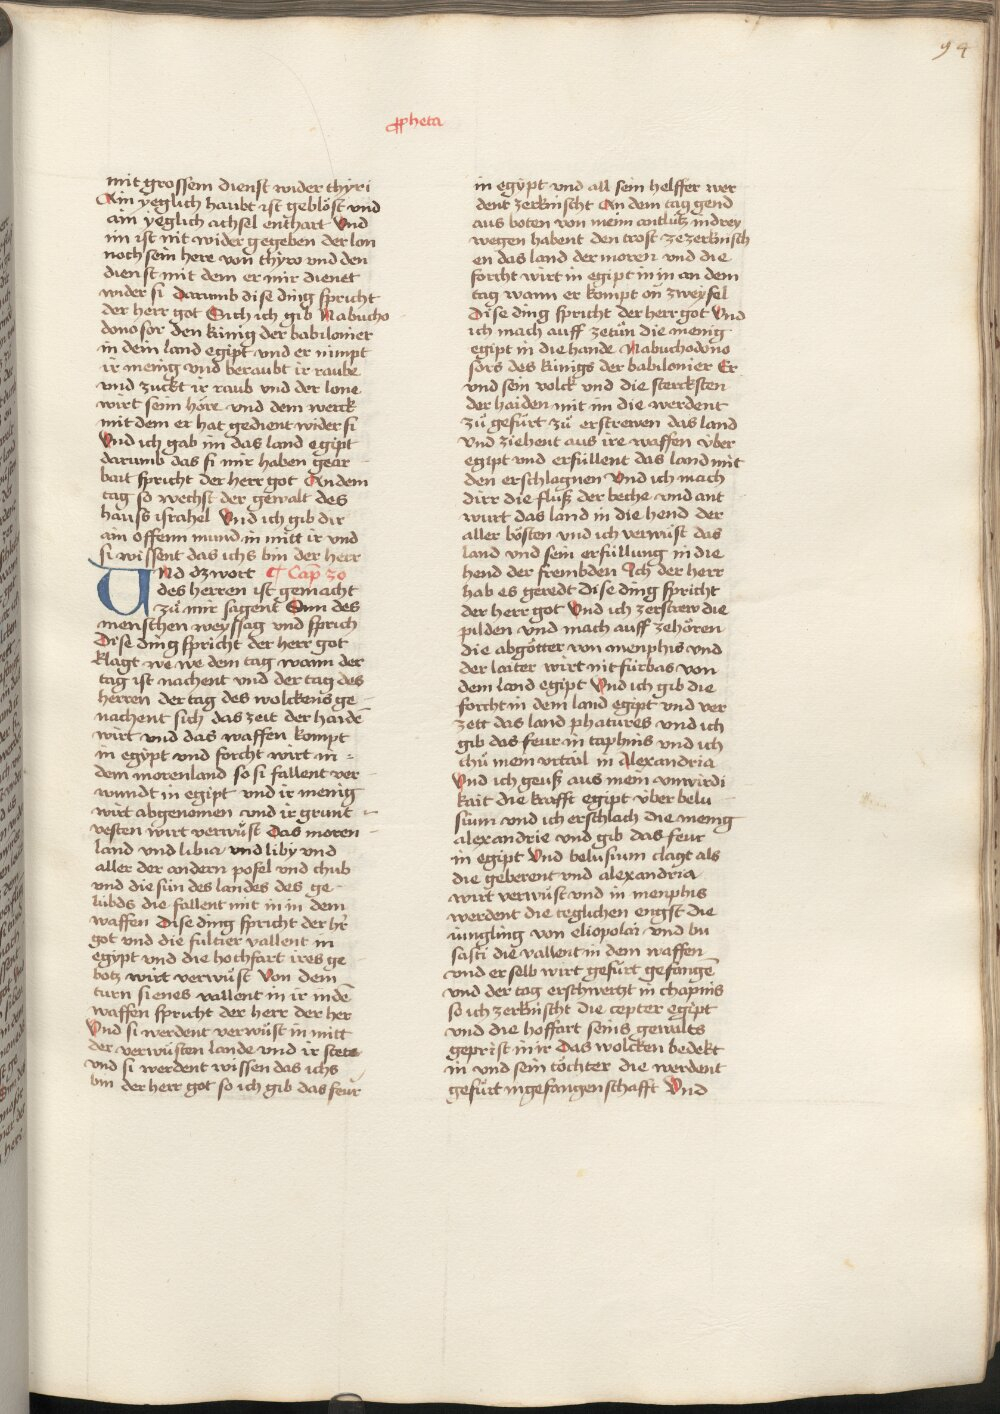 94
ꝓpheta
mit grossem dienst wider thyri
Ain yeglich haubt ist geblöst vnd
ain yeglich achsel enthart Vnd
im ist nit wider gegeben der lon
noch sein here von thyro vnd den
dienst mit dem er mir dienet
wider si Darumb dise ding spricht
der herr got Sich ich gib Nabucho
donosor den künig der babilonier
in dem land egipt vnd er nimpt
ir menig vnd beraubt ir raube
vnd zuckt ir raub vnd der lone
wirt seim höre vnd dem werck
mit dem er hat gedient wider si
Vnd ich gab im das land egipt
darumb das si mir haben gear
bait spricht der herr got An dem
tag so wechst der gewalt des
hauss israhel Vnd ich gib dir
ain offenn mund in mitt ir vnd
si wissent das ichs bin der herr
VNd dz wort ¶ Cap̄ 30
des herren ist gemacht
zů mir sagent Sun des
menschen weyssag vnd sprich
Dise ding spricht der herr got
klagt we we dem tag wann der
tag ist nachent vnd der tag des
herren der tag des wolckens ge
nachent sich das zeit der haidē
wirt vnd das waffen kompt
in egypt vnd forcht wirt in
dem morenland so si fallent ver
wundt in egipt vnd ir menig
wirt abgenomen vnd ir grunt
vesten wirt verwüst Das moren
land vnd libia vnd liby vnd
aller der andern pofel vnd chub
vnd die sün des landes des ge
lübds die fallent mit in in dem
waffen Dise ding spricht der hr̄
got vnd die fultier vallent in
egypt vnd die hochfart ires ge
botz wirt verwüst Von dem
turn sienes vallent in ir in dē
waffen spricht der herr der her
Vnd si werdent verwüst in mitt
der verwüsten lande vnd ir stete
vnd si werdent wissen das ichs
bin der herr got so ich gib das feür
in egypt vnd all sein helffer wer
dent zerknischt An dem tag gend
aus boten von meim antlütz in drey
wegen habent den trost ze zerknisch
en das land der moren vnd die
forcht wirt in egipt in in an dem
tag wann er kompt on zweyfel
Dise ding spricht der herr got Vnd
ich mach auff zetůn die menig
egipt in die hande Nabuchodono
sors des künigs der babilonier Er
vnd sein volck vnd die stercksten
der haiden mit im die werdent
zů gefürt zů erstrewen das land
vnd ziehent aus ire waffen über
egipt vnd erfüllent das land mit
den erschlagnen Vnd ich mach
dirr die fluß der beche vnd ant
wurt das land in die hend der
aller bösten vnd ich verwüst das
land vnd sein erfüllung in die
hend der frembden Ich der herr
hab es geredt Dise ding spricht
der herr got Vnd ich zerstrew die
pilden vnd mach auff zehören
die abgötter von menphis vnd
der laiter wirt nit fürbas von
dem land egipt Vnd ich gib die
forcht in dem land egipt vnd ver
zett das land phatures vnd ich
gib das feur in taphnis vnd ich
thů mein vrtail in Alexandria
Vnd ich geuß aus mein vnwirdi
kait die krafft egipt über belu
sium vnd ich erschlach die menig
alexandrie vnd gib das feur
in egipt Vnd belusium clagt als
die geberent vnd alexandria
wirt verwüst vnd in menphis
werdent die teglichen engst die
iüngling von eliopolai vnd bu
sasti die vallent in dem waffen
vnd er selb wirt gefürt gefangē
vnd der tag erschwertzt in chapnis
so ich zerknischt die cepter egipt
vnd die hoffart seins gewalts
geprist in ir Das wolcken bedekt
in vnd sein töchter die werdent
gefürt in gefangenschafft Vnd